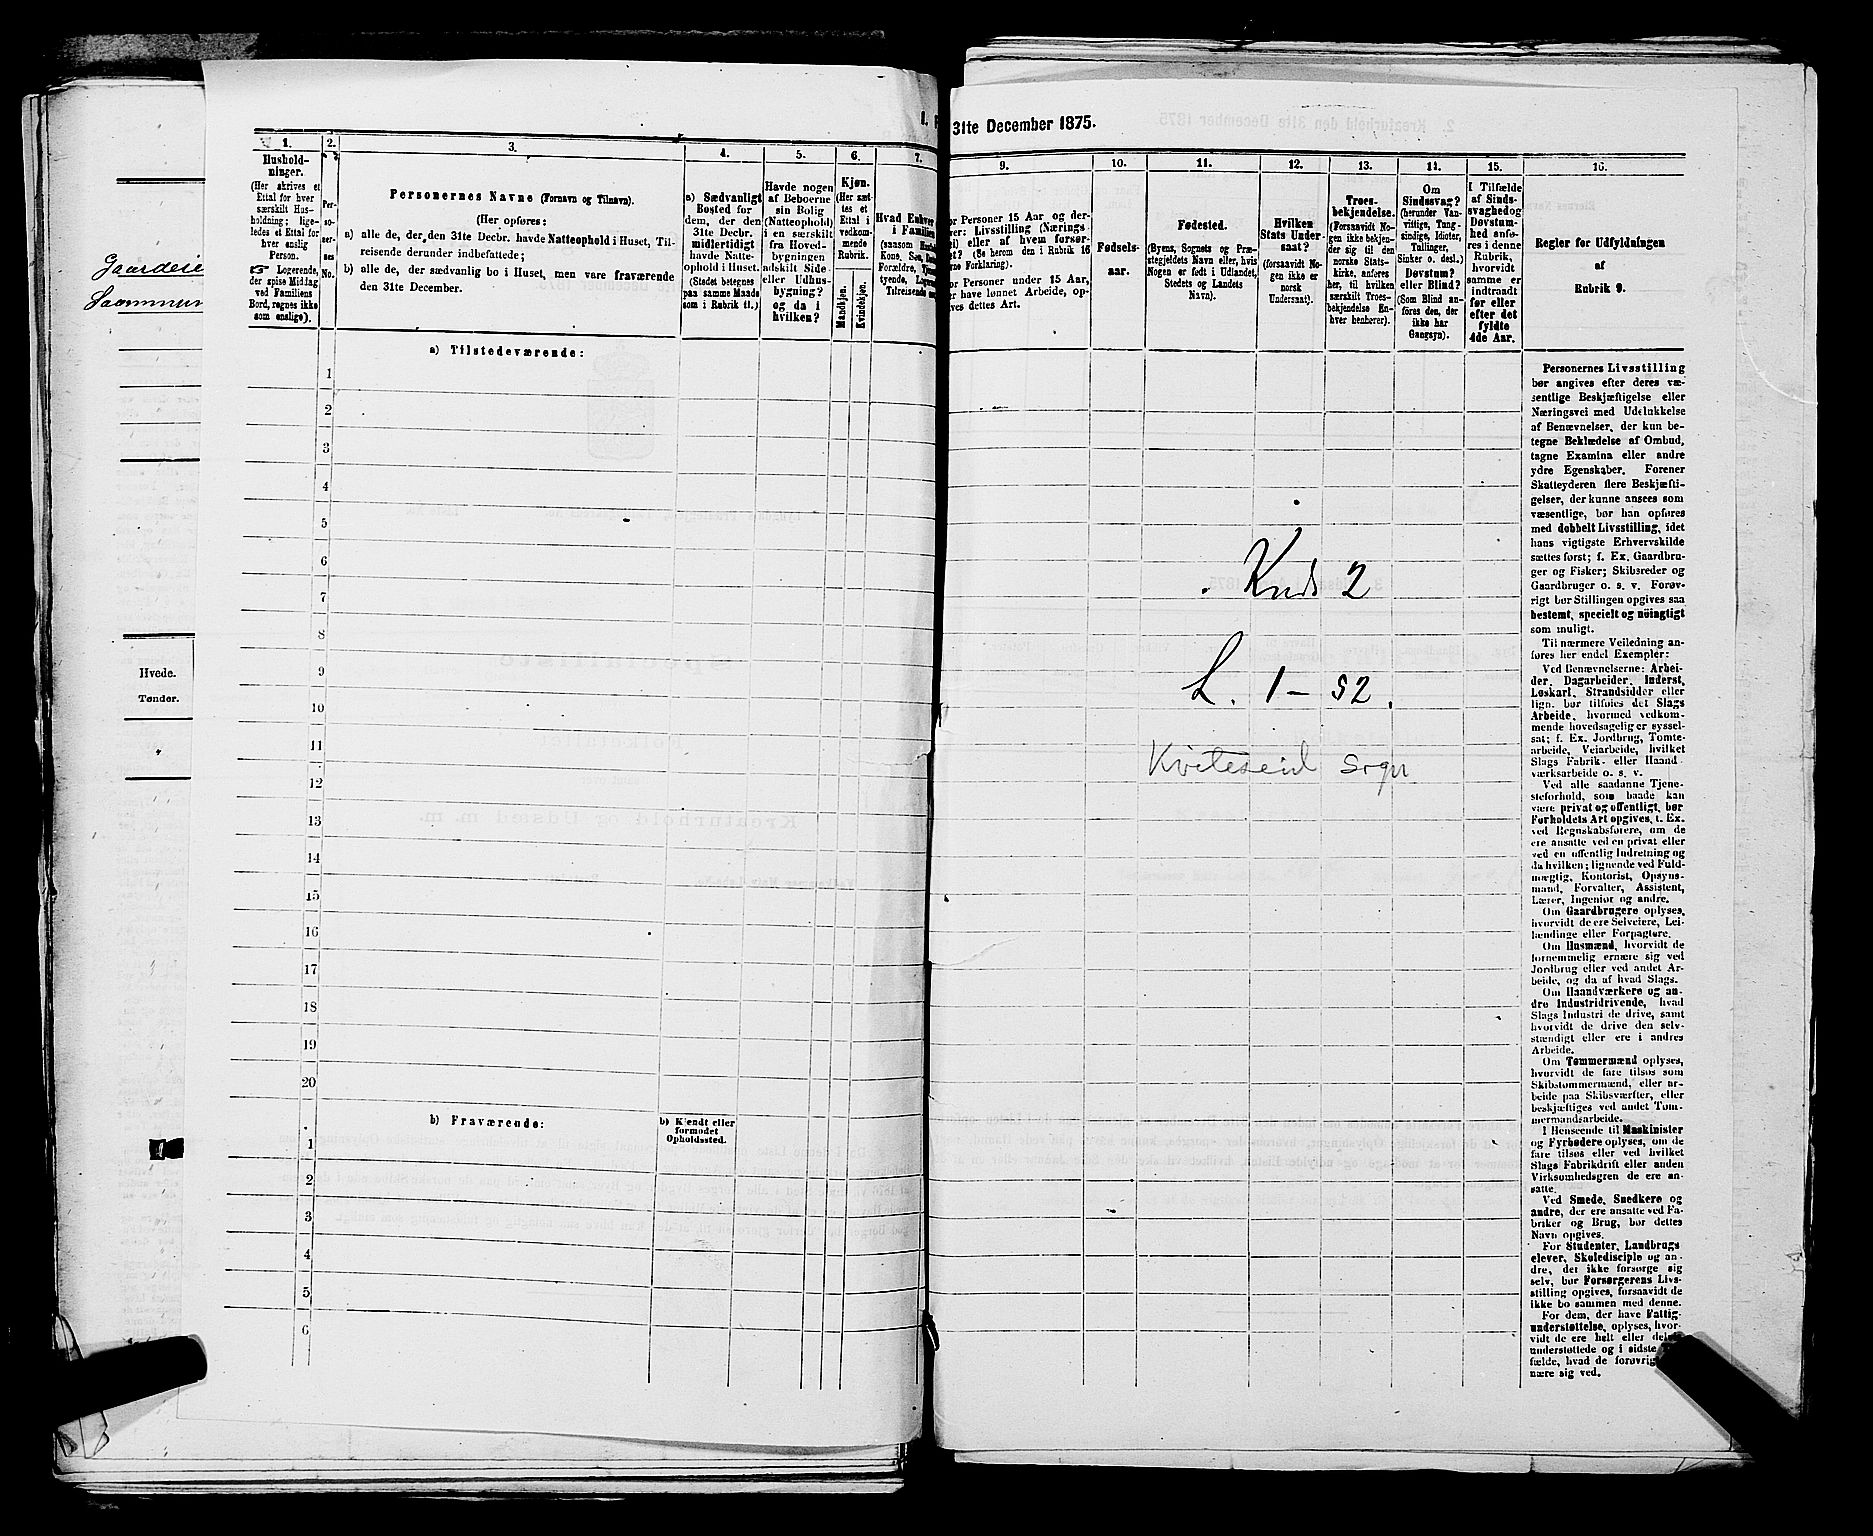 Gaardeie
Hvede.
Tønder.
31te December 1875.
1.
Hushold-
ninger.
(Her skrives et
Ettal for hver
særskilt Hus-
holdning; lige-
ledes et Ettal for
hver enslig
Person.
☞ Logerende,
der spise Middag
ved Familiens
Bord, regnes ikke
som enslige).
2.
Per-
so-
ner-
nes
No.
3.
Personernes Navne (Fornavn og Tilnavn).
(Her opføres:
a) alle de, der den 31te Decbr. havde Natteophold i Huset, Til-
reisende derunder indbefattede;
b) alle de, der sædvanlig bo i Huset, men vare fraværende
den 31te December.
4.
a) Sædvanligt
Bosted for
dem, der den
31te Decbr.
midlertidigt
havde Natte-
ophold i Huset.
(Stedet betegnes
paa samme Maade
som i Rubrik 11.)
5.
Havde nogen
af Beboerne
sin Bolig
(Natteophold)
i en særskilt
fra Hoved-
bygningen
adskilt Side-
eller Udhus-
bygning?
og da i
hvilken?
6.
Kjøn.
(Her sæt-
tes et
Ettal i
vedkom-
mende
Rubrik.
Mandkjøn.
Kvindekjøn.
7.
Hvad Enhver
i Familien
(saasom
Kone, Søn,
Forældre,
tyende,
Tilreisende
9.
or Personer 15 Aar og der-
ver: Livsstilling (Nærings
el) eller af hvem forsør-
get? (Se herom den i Rubrik 16
rne Forklaring).
or Personer under 15 Aar,
er have lønnet Arbeide, op-
ives dettes Art.
10.
Fødsels-
aar.
11.
Fødested.
(Byens, Sognets og Præ-
stegjeldets Navn eller, hvis
Nogen er født i Udlandet,
Stedets og Landets
Navn).
12.
Hvilken
Stats Under-
saat?
(forsaavidt No-
gen ikke er
norsk
Undersaat).
13.
Troes-
bekjendelse.
(Forsaavidt No-
gen ikke bekjen-
der sig til den
norske Stats-
kirke, anføres
her, til hvilken
særskilt Troes-
bekjendelse En-
hver henhører).
14.
Om
Sindssvag?
(herunder Van-
vittige, Tung-
sindige, Idioter,
Tullinger,
Sinker o. desl.)
Døvstum?
eller Blind?
(Som Blind an-
føres den, der
ikke har
Gangsyn).
15.
I Tilfælde
af Sinds-
svaghed og
Døvstum-
hed anfø-
res i denne
Rubrik,
hvorvidt
samme er
indtraadt
før eller
efter det
fyldte
4de Aar.
16.
Regler for Udfyldningen
af
Rubrik 9.
a) Tilstedeværende:
1
2
3
4
5
6
7
8
9
10
11
12
13
14
15
16
17
18
19
20
b) Fraværende:
b) Kjendt eller
formodet
Opholdssted.
1
2
3
4
5
6
Krds 2
L. 1 – 52.
Kviteseid sogn
Personernes Livsstilling
bør angives efter deres væ-
sentlige Beskjæftigelse eller
Næringsvei med Udelukkelse
af Benævnelser, der kun be-
tegne Beklædelse af Ombud,
tagne Examina eller andre
ydre Egenskaber. Forener
Skatteyderen flere Beskjæfti-
gelser, der kunne ansees som
væsentlige, bør han opføres
med dobbelt Livsstilling, idet
hans vigtigste Erhvervskilde
sættes først; f. Ex. Gaardbru-
ger og Fisker; Skibsreder og
Gaardbruger o. s. v. Forøv-
rigt bør Stillingen opgives saa
bestemt, specielt og nøiagtigt
som muligt.
Til nærmere Veiledning an-
føres her endel Exempler:
Ved Benævnelserne: Arbei-
der, Dagarbeider, Inderst,
Løskarl, Strandsidder eller
lign. bør tilføies det Slags
Arbeide, hvormed vedkom-
mende hovedsagelig er syssel-
sat; f. Ex. Jordbrug, Tomte-
arbeide, Veiarbeide, hvilket
Slags Fabrik- eller Haand-
værksarbeide o. s. v.
Ved alle saadanne Tjene-
steforhold, som baade kan
være privat og offentligt, bør
Forholdets Art opgives, t. Ex.
ved Regnskabsførere, om de
ere ansatte ved en privat eller
ved en offentlig Indretning og
da hvilken; lignende ved Fuld-
mægtig, Kontorist, Opsyns-
mand, Forvalter, Assistent,
Lærer, Ingeniør og andre.
Om Gaardbrugere oplyses,
hvorvidt de ere Selveiere, Lei-
lændinge eller Forpagtere.
Om Husmænd, hvorvidt de
fornemmelig ernære sig ved
Jordbrug eller ved andet Ar-
beide, og da af hvad Slags.
Om Haandværkere og an-
dre Industridrivende, hvad
Slags Industri de drive, samt
hvorvidt de drive den selv-
stændigt eller ere i andres
Arbeide.
Om Tømmermænd oplyses,
hvorvidt de fare tilsøs som
Skibstømmermænd, eller ar-
beide paa Skibsværfter, eller
beskjæftiges ved andet Tøm-
mermandsarbeide.
I Henseende til Maskinister
og Fyrbødere oplyses, om de
fare tilsøs eller ved hvilket
Slags Fabrikdrift eller anden
Virksomhedsgren de ere an-
satte.
Ved Smede, Snedkere og
andre, der ere ansatte ved Fa-
briker og Brug, bør dettes
Navn opgives.
For Studenter, Landbrugs
elever, Skoledisciple og an-
dre, der ikke forsørge sig
selv, bør Forsørgerens Livs-
stilling opgives, forsaavidt de
ikke bo sammen med denne.
For dem, der have Fattig-
understøttelse, oplyses, hvor-
vidt de ere helt eller delvis
understøttede og i sidste
fælde, hvad de forøvrig
nære sig ved.